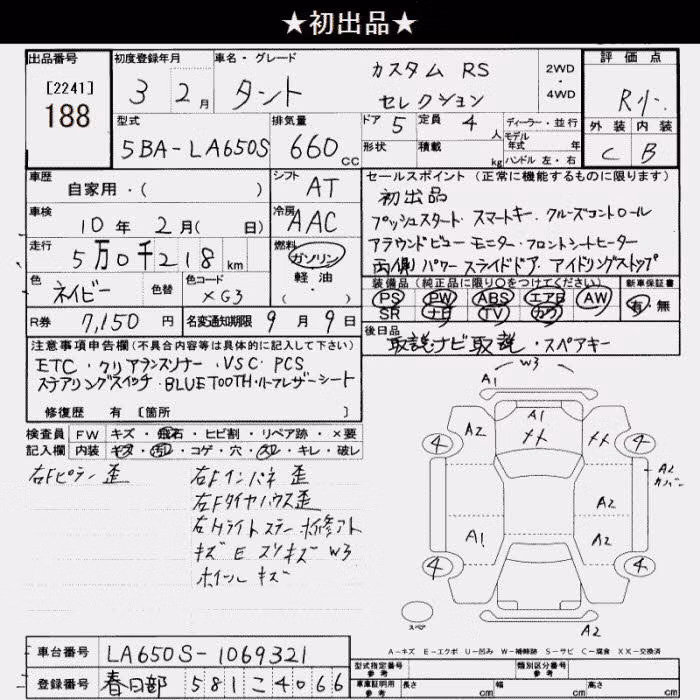 ★初出品★
出品番号
[2241]
188
初度登録年月
3 2月
車名・グレード
タント カスタム RS
セレクション
2WD
・
4WD
評価点
R小
外装 内装
C B
型式
5BA-LA650S
排気量
660 cc
ドア 5
定員 4 人
形状
積載 kg
ディーラー・並行
モデル
年式 年
ハンドル 左・右
車歴
自家用・( )
シフト
AT
車検
10年 2月( 日)
冷房
AAC
走行
5万0千218 km
燃料
ガソリン
軽油
・( )
色
ネイビー
色替
色コード
XG3
R券
7,150 円
名変通知期限 9月 9日
セールスポイント(正常に機能するものに限ります)
初出品
プッシュスタート・スマートキー・クルーズコントロール
アラウンドビューモニター・フロントシートヒーター
両側パワースライドドア・アイドリングストップ
装備品(純正品に限り○をつけてください)
新車保証書
PS PW ABS エアB AW
SR ナビ TV カワ
有 無
後日品
取説ナビ取説・スペアキー
注意事項申告欄(不具合内容等は具体的に記入して下さい)
ETC・クリアランスソナー・VSC・PCS
ステアリングスイッチ・BLUETOOTH・ハーフレザーシート
修復歴 有 [箇所 ]
検査員 FW キズ・飛石・ヒビ割・リペア跡・×要
記入欄 内装 キズ・汚レ・コゲ・穴・スレ・キレ・破レ
右Fピラー 歪
右Fインパネ 歪
右Fタイヤハウス歪
右Hライトステー補修アト
キズ E スリキズ W3
ホイールキズ
W3
A1
A1
A2
4
4
A2
カバー
A2
A1
A2
4
4
A2
スペア
A-キズ E-エクボ U-凹み W-補修跡 S-サビ C-腐食 XX-交換済
車台番号 LA650S-1069321
登録番号 春日部 581 こ 4066
型式指定番号
参考
類別区分番号
参考
車庫証明用
参考
長さ cm
幅 cm
高さ cm